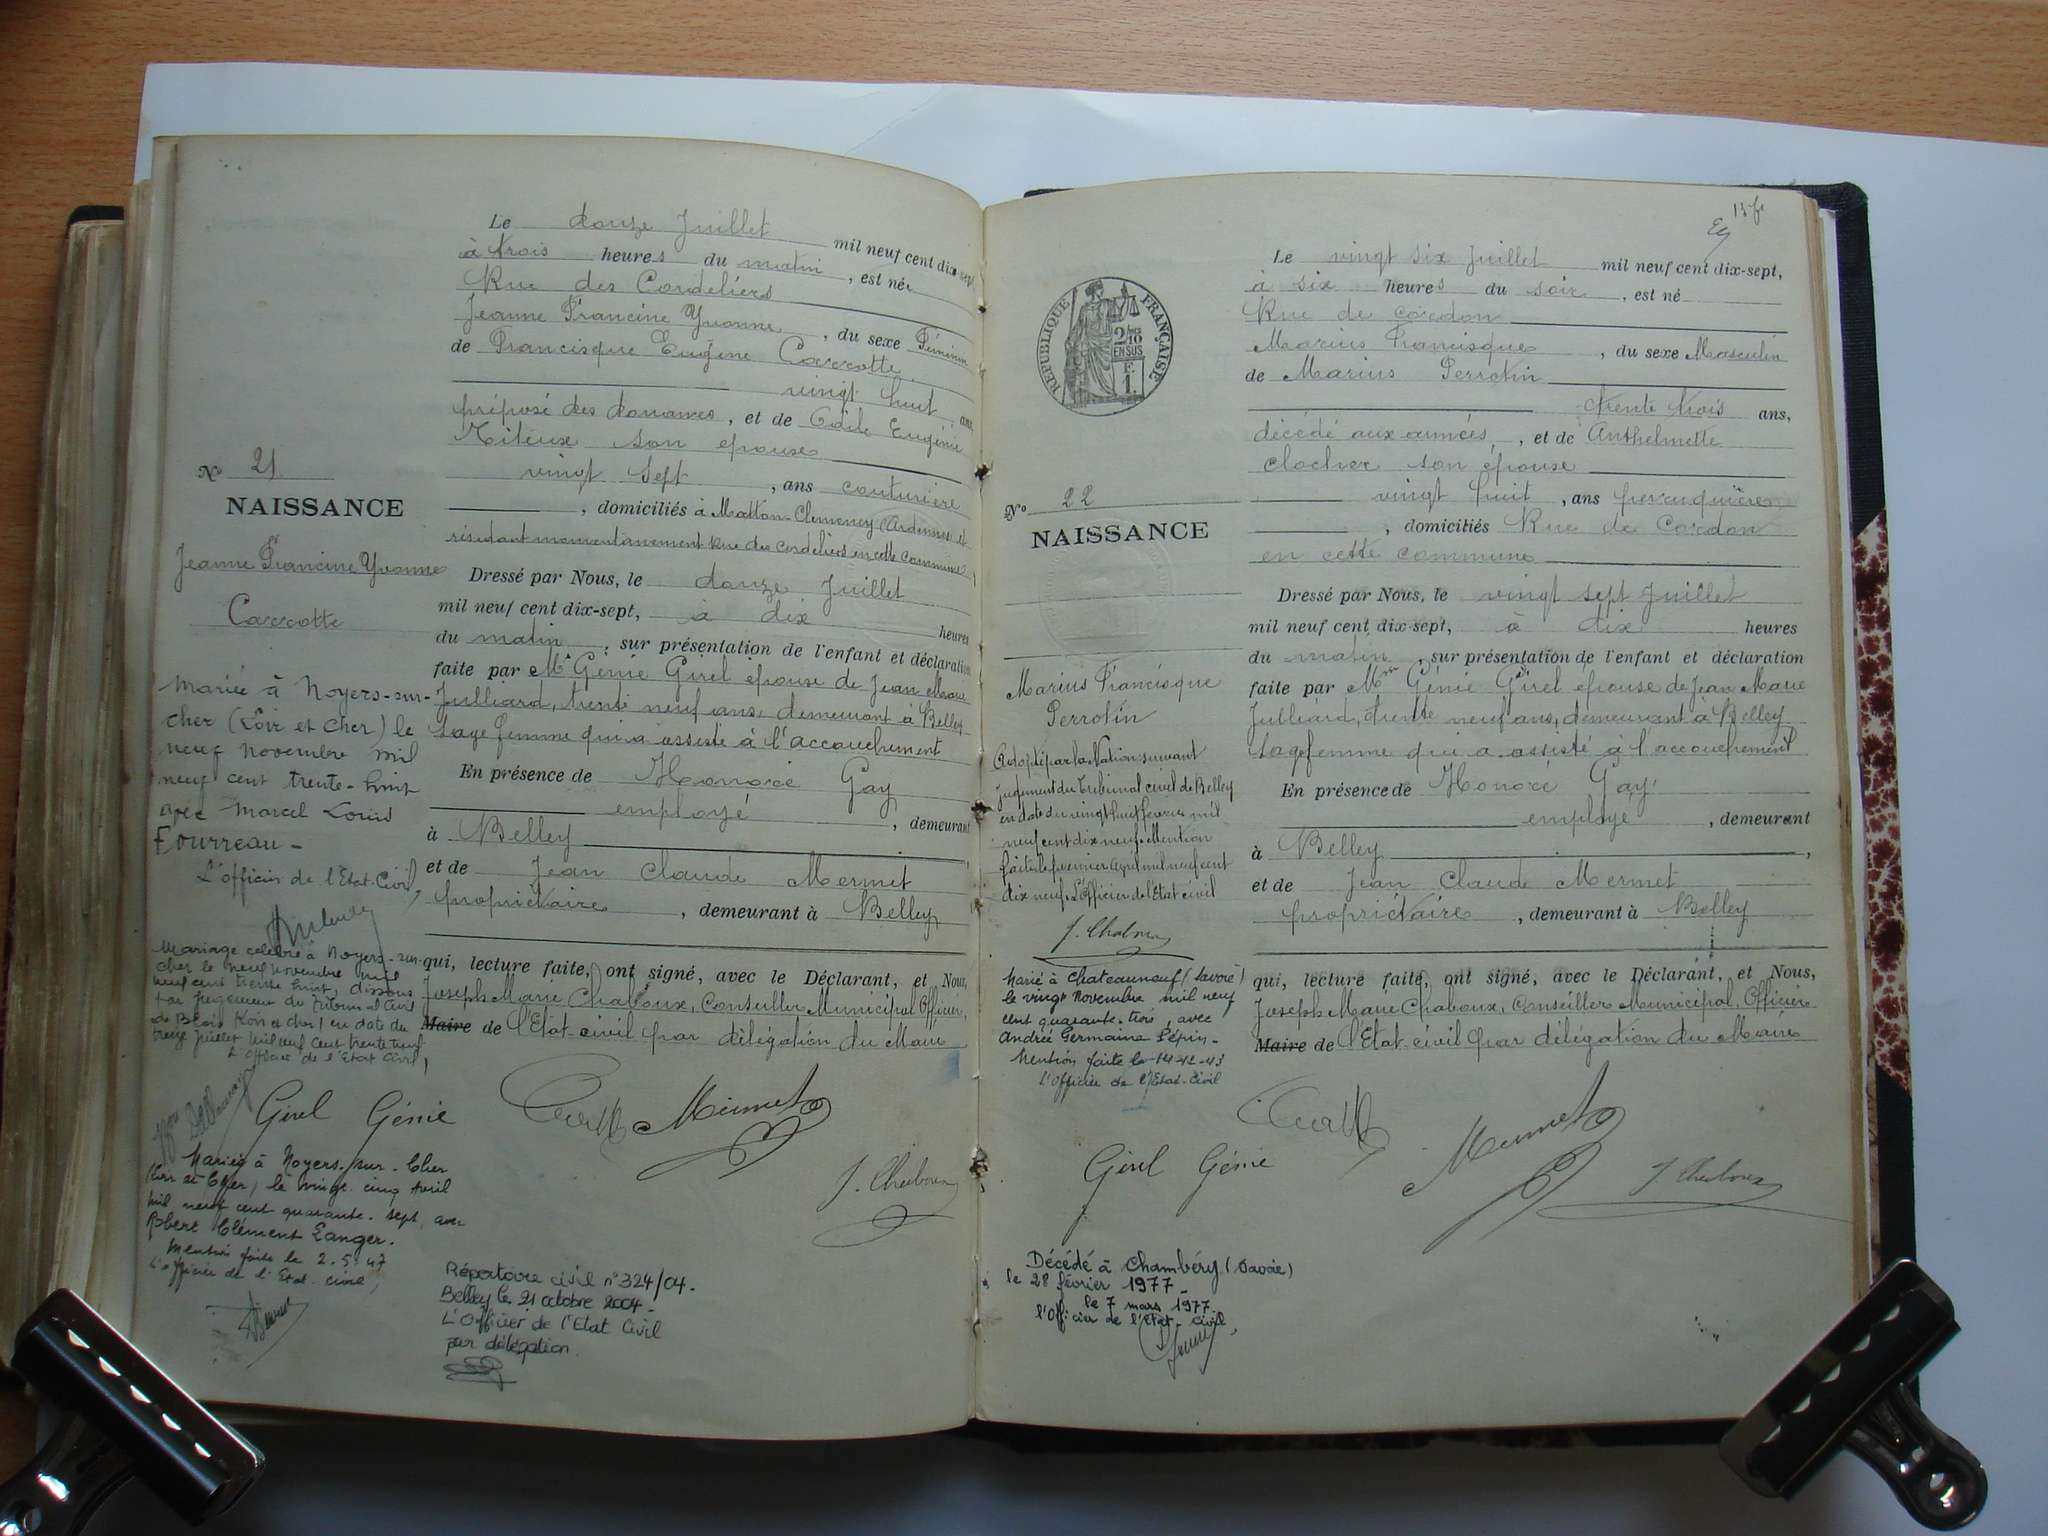 Le douze Juillet mil neuf cent dix-sept
à trois heures du matin, est née
Rue des Cordeliers
Jeanne Francine Yvonne, du sexe Féminin
de Francisque Eugène Carrotte
vingt huit ans,
préposé des douanes, et de Odile Eugénie
son épouse
vingt sept, ans couturière
, domiciliés à Matton-Clemency (Ardennes) et
résidant momentanément Rue des Cordeliers en cette commune
N° 21
NAISSANCE
Jeanne Francine Yvonne
Carrotte
Dressé par Nous, le douze Juillet
mil neuf cent dix-sept, à dix heures
du matin, sur présentation de l'enfant et déclaration
faite par Me Génie Girel épouse de Jean Marie
Julliard, trente neuf ans, demeurant à Belley
sage femme qui a assisté à l'accouchement
En présence de Honoré Gay
employé, demeurant
à Belley,
et de Jean Claude Mermet
propriétaire, demeurant à Belley
qui, lecture faite, ont signé, avec le Déclarant, et Nous,
Joseph Marie Chaboux, Conseiller Municipal, Officier
Maire de l'Etat-civil par délégation du Maire
Mariée à Noyers-sur-
cher (Loir et Cher) le
neuf novembre mil
neuf cent trente-huit
avec Marcel Louis
Fourreau -
L'officier de l'Etat-Civil,
Mariage célébré à Noyers-sur-
cher le neuf novembre mil
neuf cent trente huit, dissous
par jugement du Tribunal Civil
de Blois (Loir et cher) en date du
treize juillet mil neuf cent trente neuf
L'Officier de l'Etat Civil,
Girel Génie
Mermet
J. Chaboux
Mariée à Noyers-sur-Cher
(Loir et Cher) le vingt-cinq Avril
mil neuf cent quarante-sept, avec
Robert Clément Langer.
Mention faite le 2.5.47
L'officier de l'Etat-civil,
Répertoire civil n°324/04.
Belley le 21 octobre 2004.
L'Officier de l'Etat Civil
par délégation.
13 fr
RÉPUBLIQUE FRANÇAISE
2/10
EN SUS
F.
1.
Le vingt six Juillet mil neuf cent dix-sept,
à six heures du soir, est né
Rue de Cordon
Marius Francisque, du sexe Masculin
de Marius Perrotin
trente trois ans,
décédé aux armées, et de Anthelmette
Clocher son épouse
vingt huit, ans perruquière
, domiciliés Rue de Cordon
en cette commune
N° 22
NAISSANCE
Marius Francisque
Perrotin
Dressé par Nous, le vingt sept Juillet
mil neuf cent dix-sept, à dix heures
du matin, sur présentation de l'enfant et déclaration
faite par Mme Génie Girel épouse de Jean Marie
Julliard, trente neuf ans, demeurant à Belley
sagefemme qui a assisté à l'accouchement
En présence de Honoré Gay
employé, demeurant
à Belley,
et de Jean Claude Mermet
propriétaire, demeurant à Belley
qui, lecture faite, ont signé, avec le Déclarant, et Nous,
Joseph Marie Chaboux, Conseiller Municipal, Officier
Maire de l'Etat-civil par délégation du Maire
Adopté par la Nation suivant
jugement du Tribunal civil de Belley
en date du vingt huit février mil
neuf cent dix neuf. Mention
faite le premier Avril mil neuf cent
dix neuf. L'Officier de l'Etat civil
J. Chaboux
Marié à Chateauneuf (Savoie)
le vingt Novembre mil neuf
cent quarante-trois, avec
Andrée Germaine Pépin.
Mention faite le 14-12-43
L'Officier de l'Etat-Civil
Girel Génie
Mermet
J. Chaboux
Décédé à Chambéry (Savoie)
le 28 février 1977.
le 7 mars 1977.
l'Officier de l'Etat-civil,